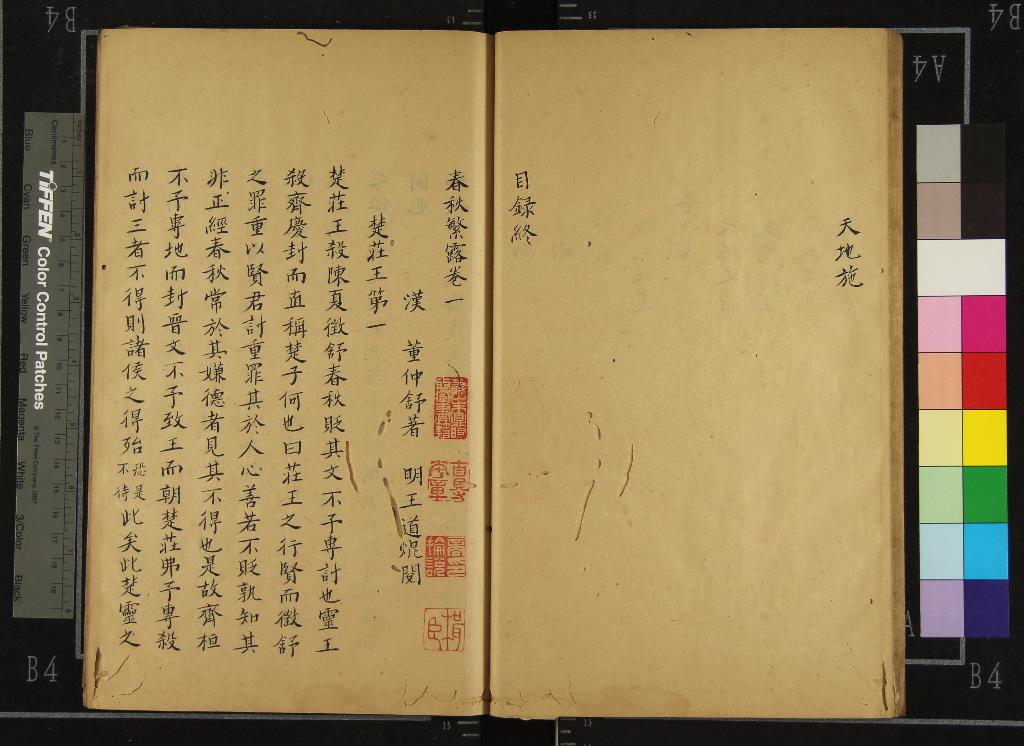 天地施
目録終
春秋繁露卷一
漢 董仲舒著 明王道焜閱
楚莊王第一
楚莊王殺陳夏徵舒春秋貶其文不予專討也靈王
殺齊慶封而直稱楚子何也曰莊王之行賢而徵舒
之罪重以賢君討重罪其於人心善若不貶孰知其
非正經春秋常於其嫌德者見其不得也是故齊桓
不予專地而封晉文不予致王而朝楚莊弗予專殺
而討三者不得則諸侯之得殆恐是不待此矣此楚靈之
B4
B4
A4
B4
B4
TIFFEN Color Control Patches
© The Tiffen Company, 2007
Inches
Centimetres
Blue
Cyan
Green
Yellow
Red
Magenta
White
3/Color
Black